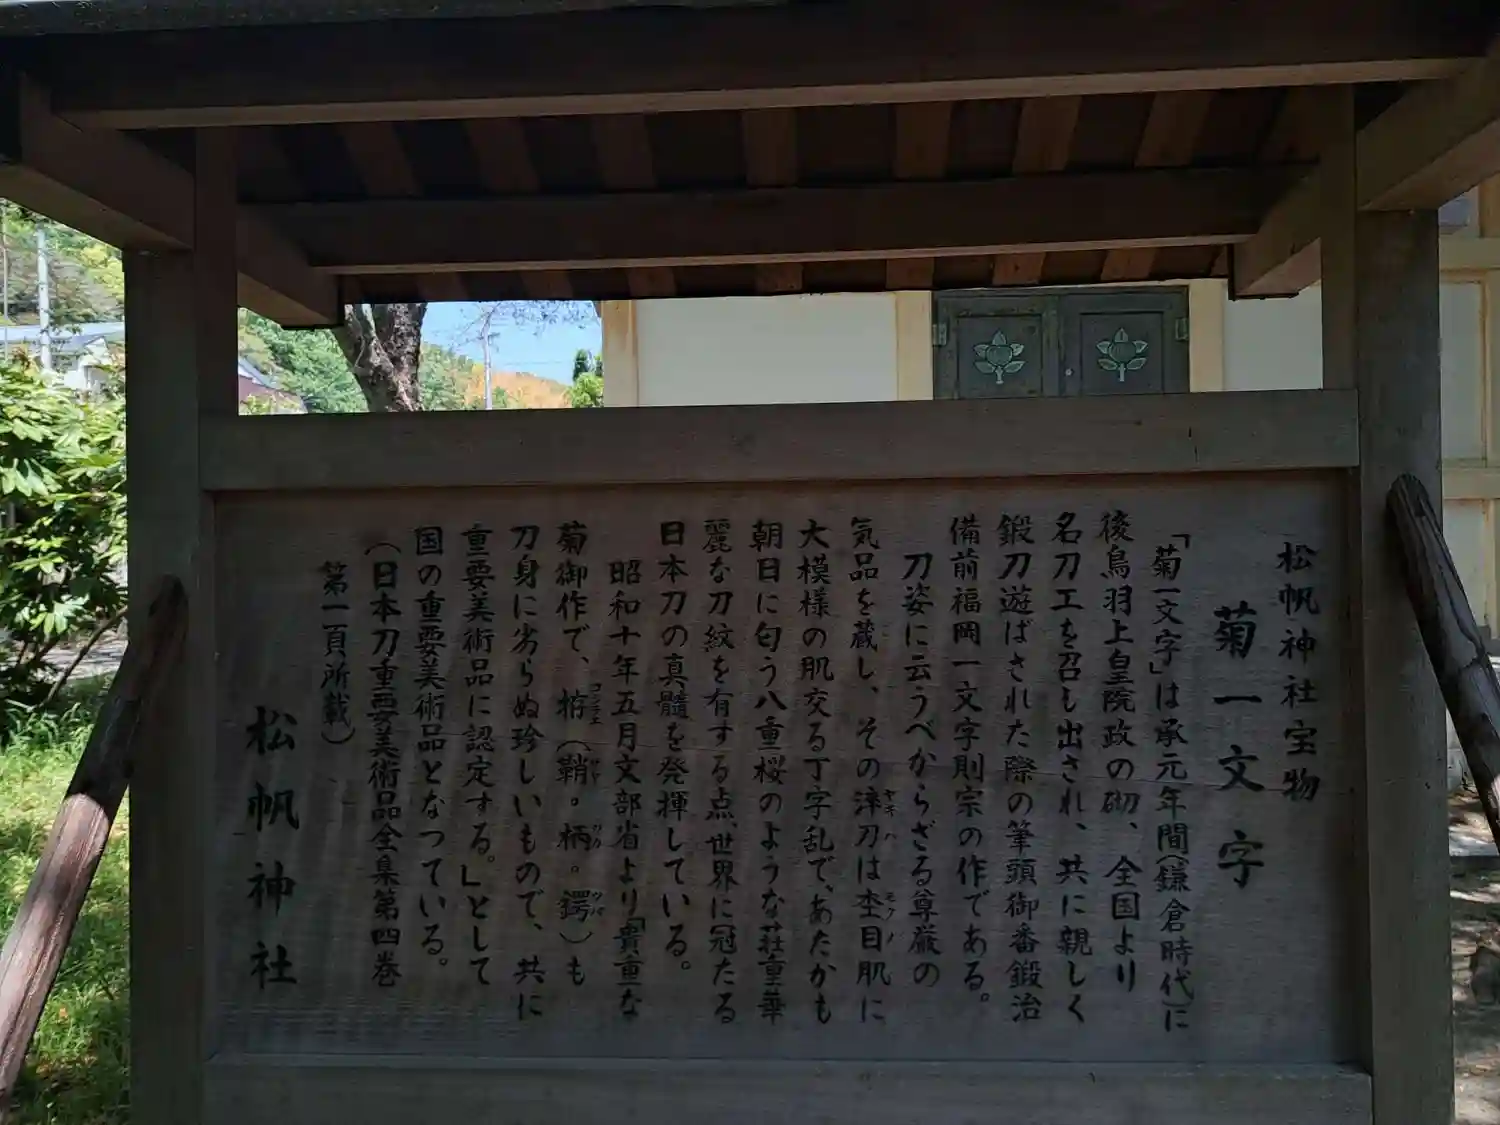 松帆神社宝物
菊一文字
「菊一文字」は承元年間(鎌倉時代)に
後鳥羽上皇院政の砌、全国より
名刀工を召し出され、共に親しく
鍛刀遊ばされた際の筆頭御番鍛治
備前福岡一文字則宗の作である。
刀姿に云うべからざる尊厳の
気品を蔵し、その淬刀は杢目肌に
ヤキハ
モクメ
大模様の肌交る丁字乱で、あたかも
朝日に匂う八重桜のような荘重華
麗な刀紋を有する点世界に冠たる
日本刀の真髄を発揮している。
昭和十年五月文部省より「貴重な
菊御作で、拵(鞘。柄。鍔)も
コシラエ
サヤ
ツカ
ツバ
刀身に劣らぬ珍しいもので、共に
重要美術品に認定する。」として
国の重要美術品となつている。
(日本刀重要美術品全集第四巻
第一頁所載)
松帆神社